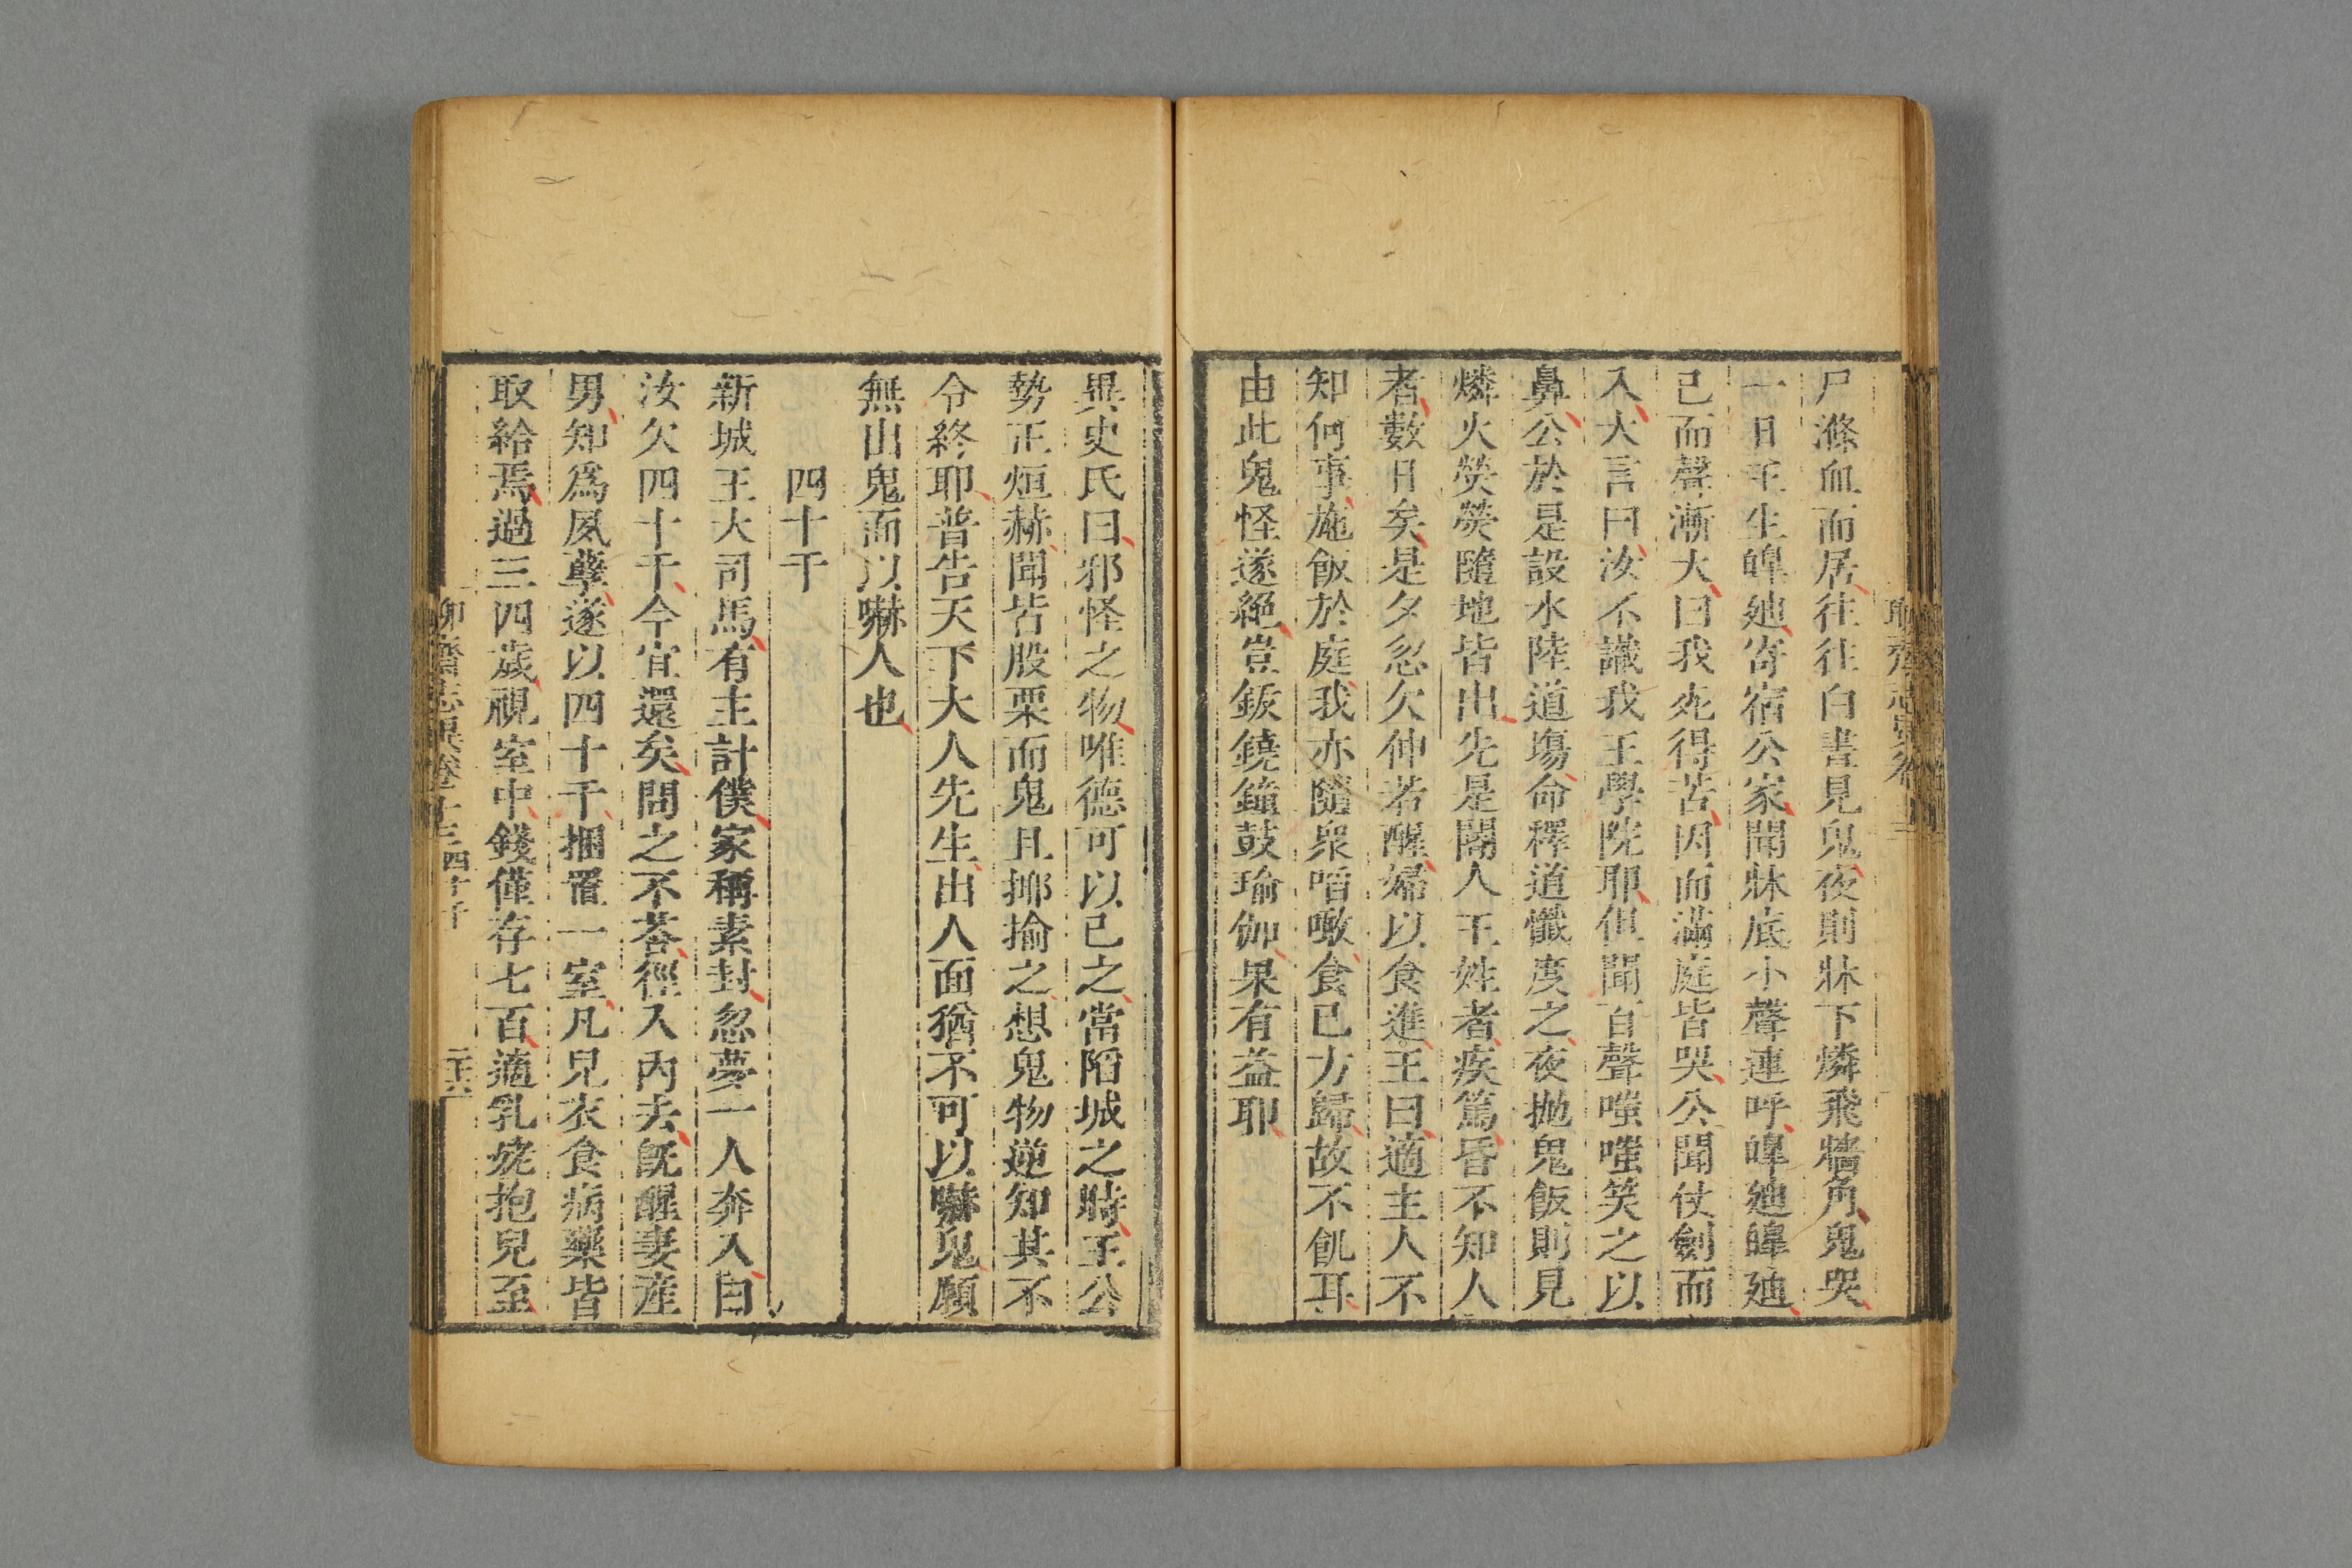 尸滌血而居往往白晝見鬼夜則牀下燐飛牆角鬼哭
一日王生皥廸寄宿公家聞牀底小聲連呼皥廸皥廸
已而聲漸大曰我死得苦因而滿庭皆哭公聞仗劍而
入大言曰汝不識我王學院耶但聞百聲嗤嗤笑之以
鼻公於是設水陸道塲命釋道懺度之夜抛鬼飯則見
燐火熒熒隨地皆出先是閽人王姓者疾篤昏不知人
者數日矣是夕忽欠伸若醒婦以食進王曰適主人不
知何事施飯於庭我亦隨衆啗噉食已方歸故不飢耳
由此鬼怪遂絕豈鈸鐃鐘鼓瑜伽果有益耶
異史氏曰邪怪之物唯德可以已之當陷城之時王公
勢正烜赫聞皆股栗而鬼且揶揄之想鬼物逆知其不
令終耶普告天下大人先生出人面猶不可以嚇鬼願
無出鬼面以嚇人也
四十千
新城王大司馬有主計僕家稱素封忽夢一人奔入曰
汝欠四十千今宜還矣問之不荅徑入內去旣醒妻產
男知爲夙孽遂以四十千捆置一室凡兒衣食病藥皆
取給焉過三四歲視室中錢僅存七百適乳姥抱兒至
聊齋志異卷十三 四十千 二十六